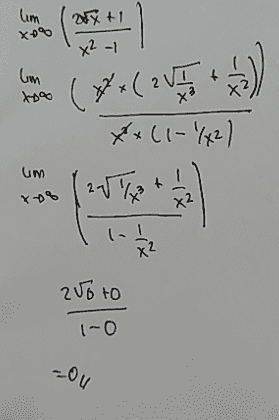 lim x→∞ ( (2√x + 1) / (x² - 1) )
lim x→∞ ( x² × ( 2√(1/x³) + 1/x² ) ) / ( x² × (1 - 1/x²) )
lim x→∞ ( (2√(1/x³) + 1/x²) / (1 - 1/x²) )
(2√0 + 0) / (1 - 0)
= 0//